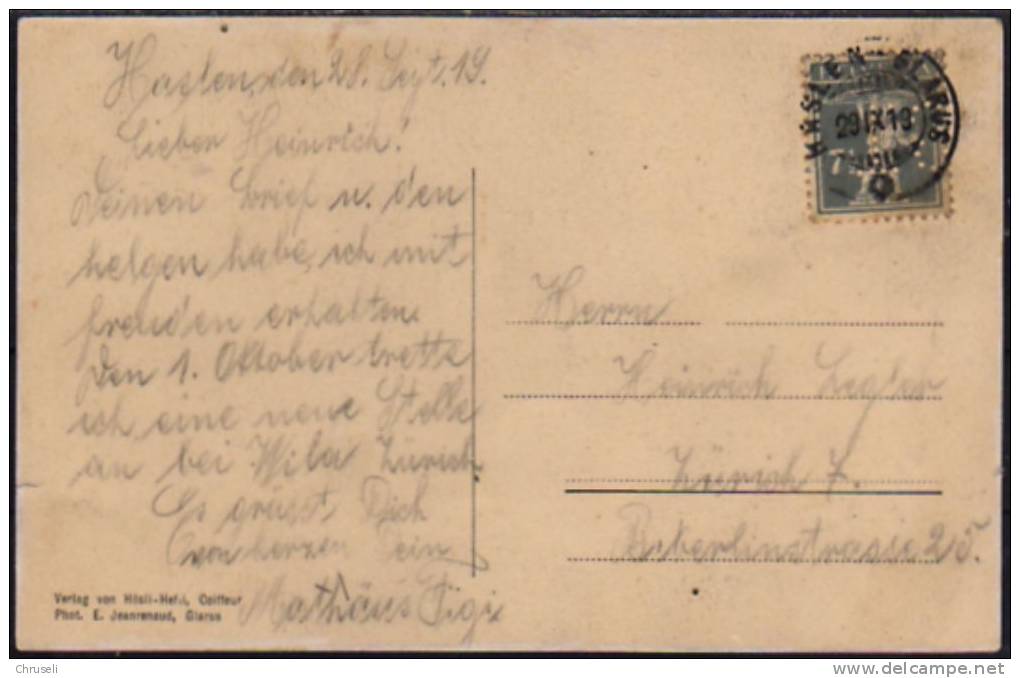 Haslen, den 28. Sept. 19.
Lieber Heinrich!
Deinen Brief u. den
helgen habe ich mit
freuden erhalten.
Den 1. Oktober trette
ich eine neue Stelle
an bei Wila Zürich
Es grüsst Dich
von herzen Dein
Mathäus Figi
HASLEN GLARUS
29 IX 19
7
Herrn
Heinrich Legler
Zürich 7.
strasse 25.
Verlag von Hösli-Hefti, Coiffeur
Phot. E. Jeanrenaud, Glarus
Chruseli
www.delcampe.net